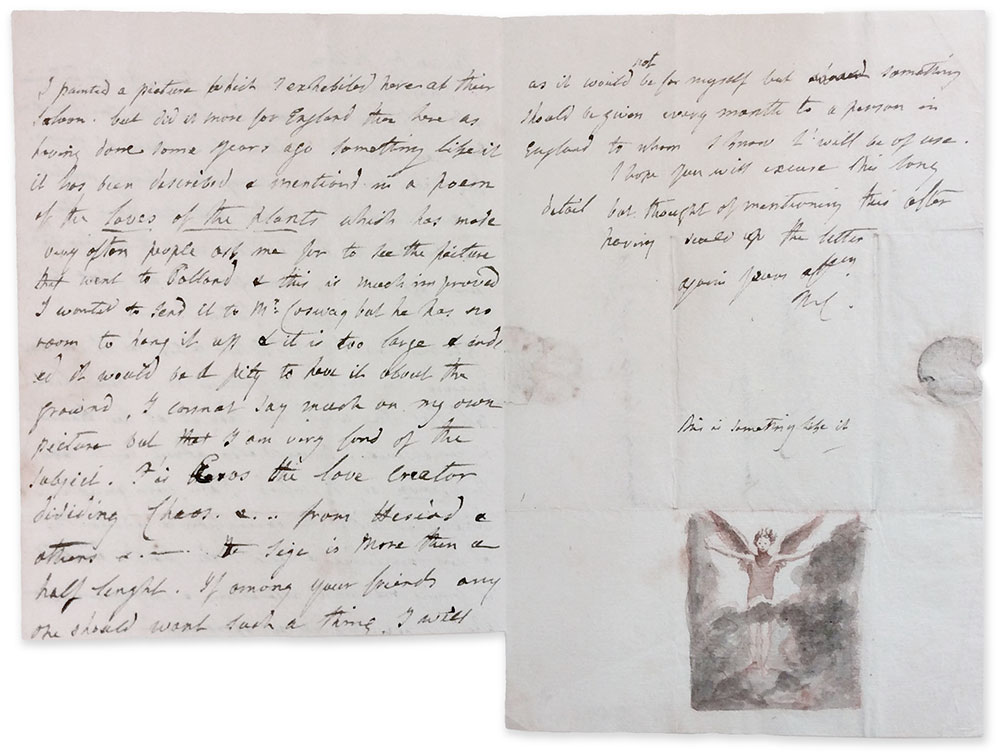 I painted a picture which I exhibited here at their
Saloon. but did it more for England than here as
having done some years ago something like it
it has been described & mentiond in a poem
of the Loves of the plants which has made
very often people ask me for to see the picture
that went to Polland & this is much improved
I wanted to send it to Mr. Cosway but he has no
room to hang it up & it is too large & inde
ed it would be a pity to have it about the
ground, I connot say much on my own
picture but that I am very fond of the
Subject. Tis Eros the love Creator
dividing Chaos. &.. from Hesiod &
others &. — The Sige is more then a
half lenght. If among your friends any
one should want such a thing, I will
as it would not be for myself but something
should be given every month to a person in
England to whom I know it will be of use.
I hope you will excuse this long
detail but thought of mentioning this after
having seald up the letter
again yours affly
M C.
this is something like it